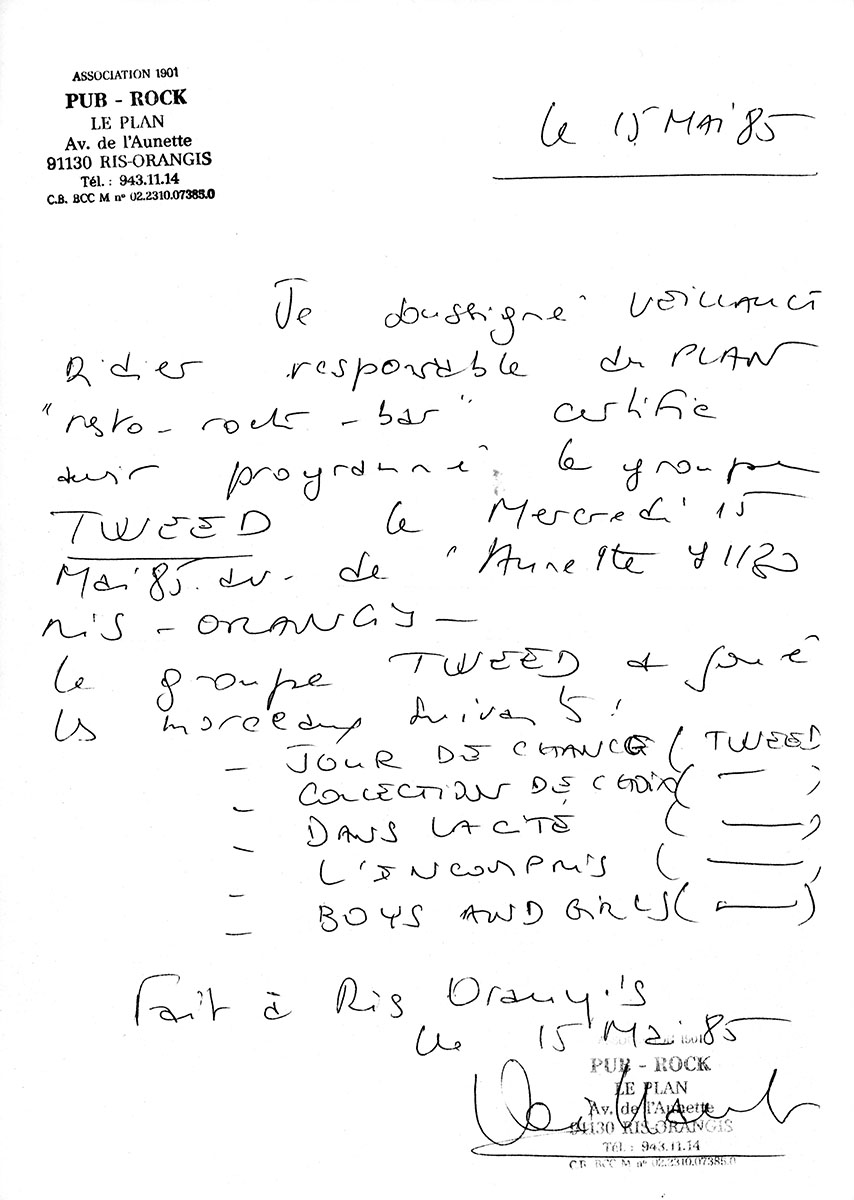 ASSOCIATION 1901
PUB - ROCK
LE PLAN
Av. de l'Aunette
91130 RIS-ORANGIS
Tél. : 943.11.14
C.B. BCC M n° 02.2310.07385.0
le 15 MAI 85
Je soussigné VEILLAULT
Didier responsable du PLAN
"resto-rock-bar" certifie
avoir programmé le groupe
TWEED le Mercredi 15
Mai 85. av. de l'Aunette 91130
RIS - ORANGIS -
Le groupe TWEED a joué
les morceaux suivants :
- JOUR DE CHANCE ( TWEED
- COLLECTION DE CHOIX ( — )
- DANS LA CITÉ ( — )
- L'INCOMPRIS ( — )
- BOYS AND GIRLS ( — )
Fait à Ris Orangis
le 15 Mai 85
PUB - ROCK
LE PLAN
Av. de l'Aunette
91130 RIS-ORANGIS
Tél. : 943.11.14
C.B. BCC M n° 02.2310.07385.0